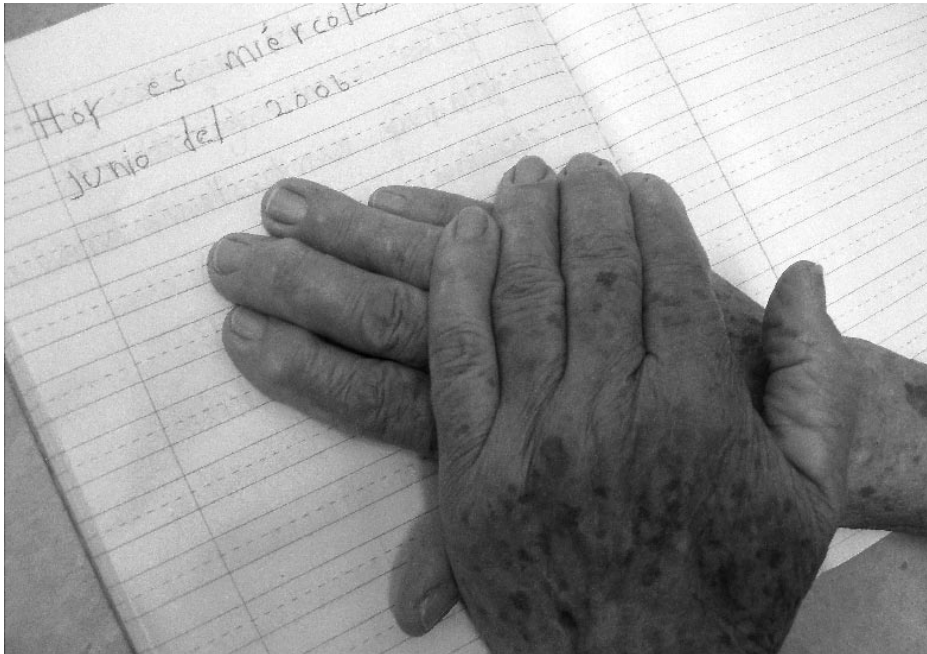 Hoy es miércoles
junio del 2006.